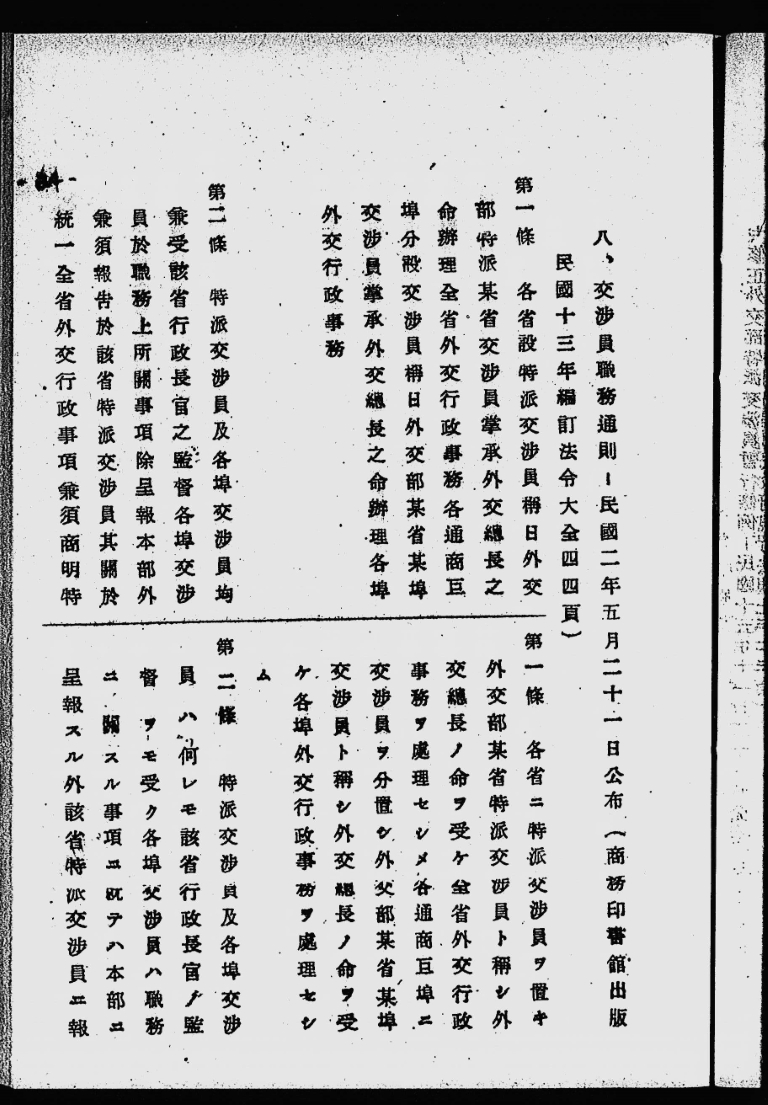 八、交涉員職務通則―民國二年五月二十一日公布(商務印書館出版
民國十三年編訂法令大全四四頁)
第一條　各省設特派交涉員稱日外交
部特派某省交涉員掌承外交總長之
命辦理全省外交行政事務各通商巨
埠分設交涉員稱日外交部某省某埠
交涉員掌承外交總長之命辦理各埠
外交行政事務
第二條　特派交涉員及各埠交涉員均
兼受該省行政長官之監督各埠交涉
員於職務上所關事項除呈報本部外
兼須報告於該省特派交涉員其關於
統一全省外交行政事項兼須商明特
第一條　各省ニ特派交涉員ヲ置キ
外交部某省特派交涉員ト稱シ外
交總長ノ命ヲ受ケ全省外交行政
事務ヲ處理セシメ各通商巨埠ニ
交涉員ヲ分置シ外交部某省某埠
交涉員ト稱シ外交總長ノ命ヲ受
ケ各埠外交行政事務ヲ處理セシ
ム
第二條　特派交涉員及各埠交涉
員ハ何レモ該省行政長官ノ監
督ヲモ受ク各埠交涉員ハ職務
ニ關スル事項ニ就テハ本部ニ
呈報スル外該省特派交涉員ニ報